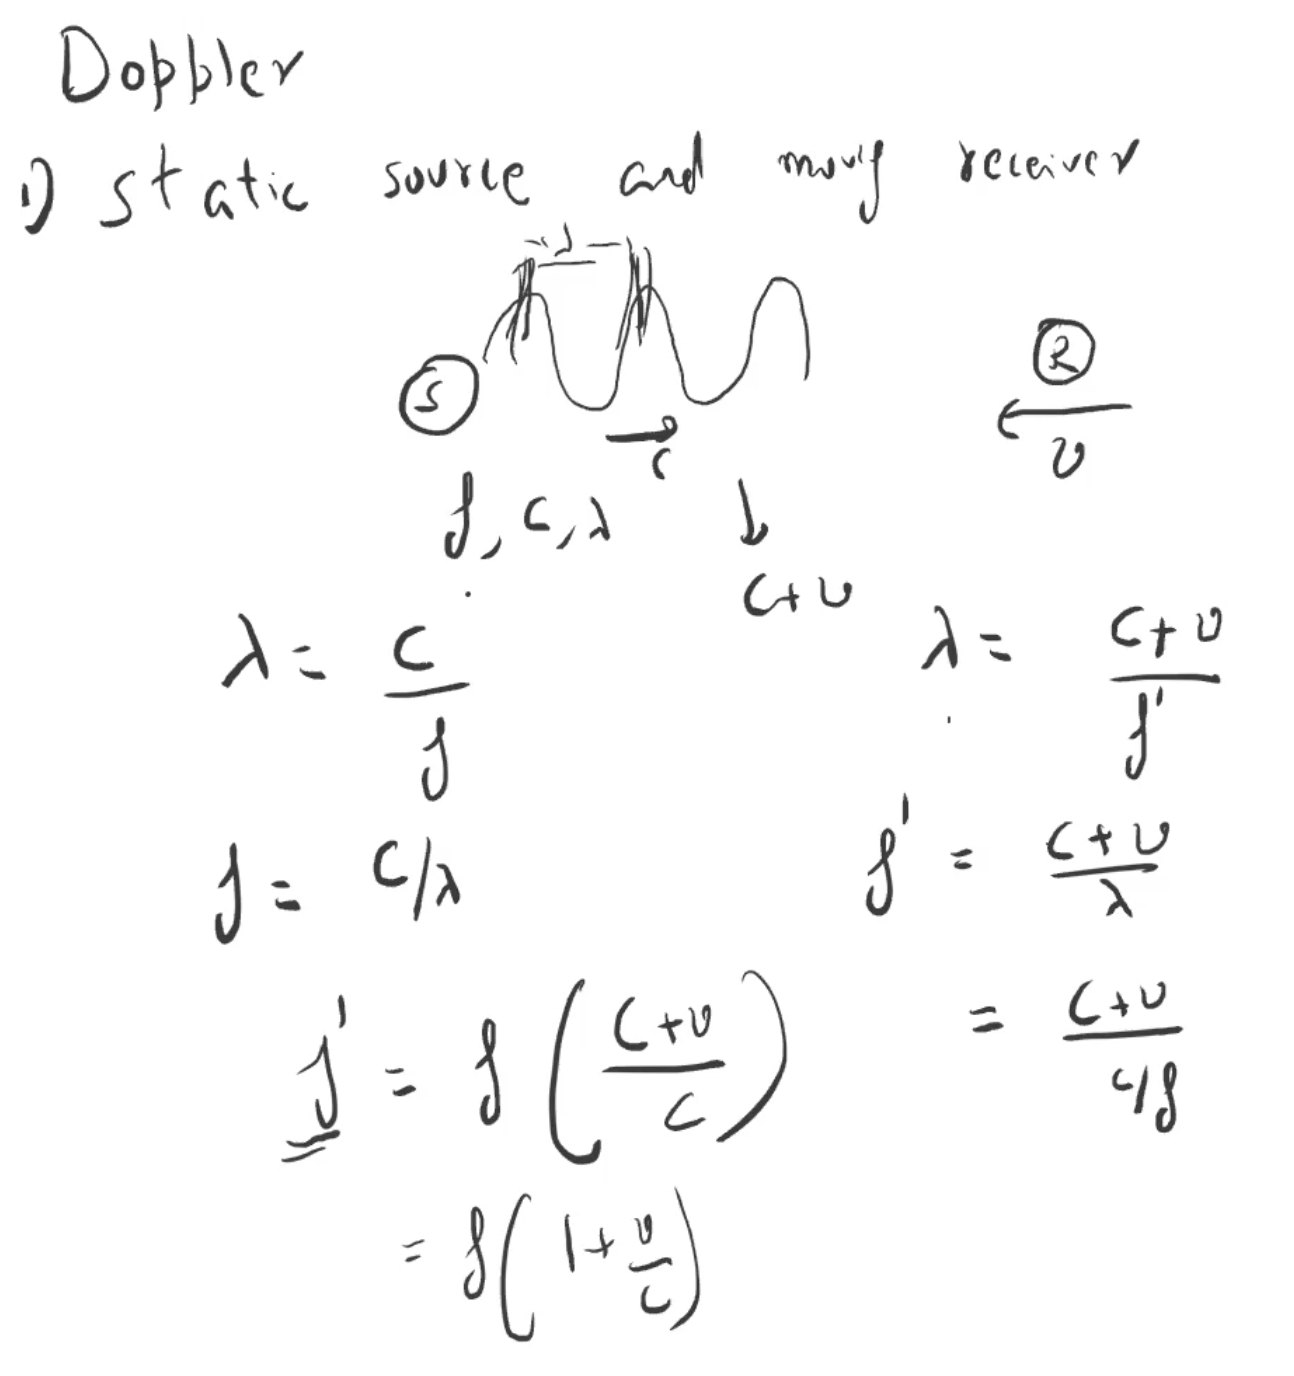 Doppler
1) static source and moving receiver
λ
S
R
c
v
f, c, λ
c+v
λ = c/f
λ = (c+v)/f'
f = c/λ
f' = (c+v)/λ
= (c+v)/(c/f)
f' = f((c+v)/c)
= f(1+v/c)